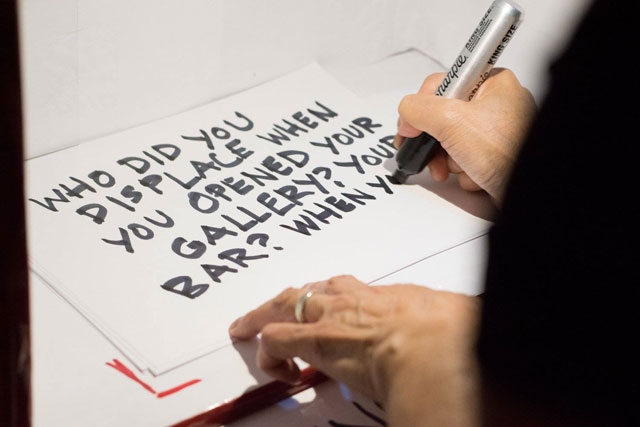 WHO DID YOU
DISPLACE WHEN
YOU OPENED YOUR
GALLERY? YOUR
BAR? WHEN Y
Sharpie
KING SIZE